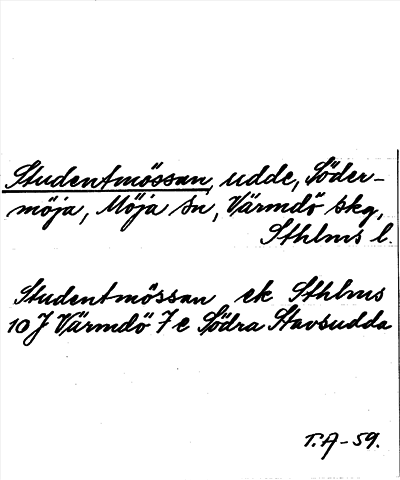 Studentmössan, udde, Söder-
möja, Möja sn, Värmdö skg,
Sthlms l.
Studentmössan ek Sthlms
10 J Värmdö 7 e Södra Stavsudda
T. A - 59.